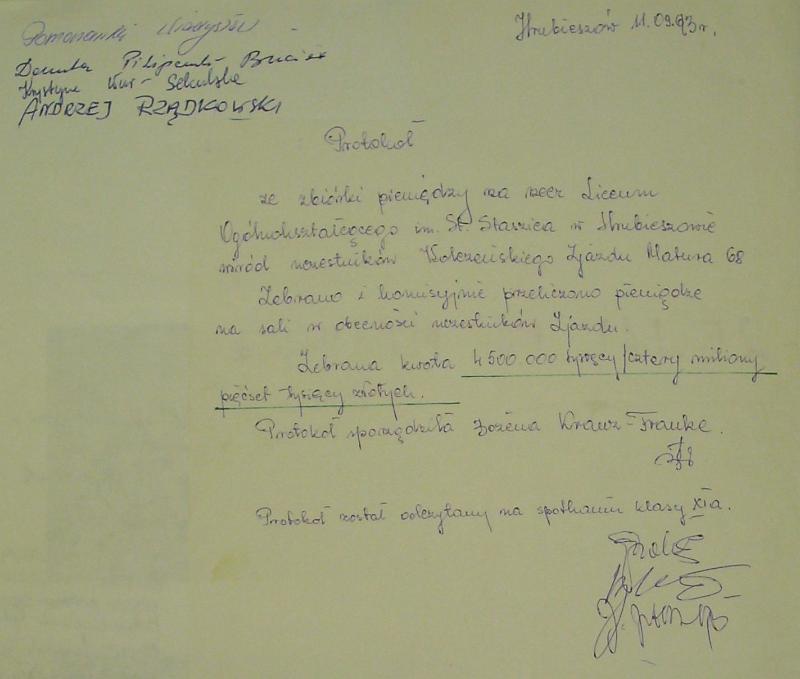 Hrubieszów 11.09.93r.
Danuta Filipczuk-
Krystyna Kur-Sekulska
ANDRZEJ RZĄDKOWSKI
Protokół
ze zbiórki pieniędzy na rzecz Liceum
Ogólnokształcącego im. St. Staszica w Hrubieszowie
wśród uczestników Koleżeńskiego Zjazdu Matura 68
Zebrano i komisyjnie przeliczono pieniądze
na sali w obecności uczestników Zjazdu.
Zebrana kwota 4 500 000 tysięcy /cztery miliony
pięćset tysięcy złotych.
Protokół sporządziła Bożena Krawz-Franke.
Protokół został odczytany na spotkaniu klasy XIa.